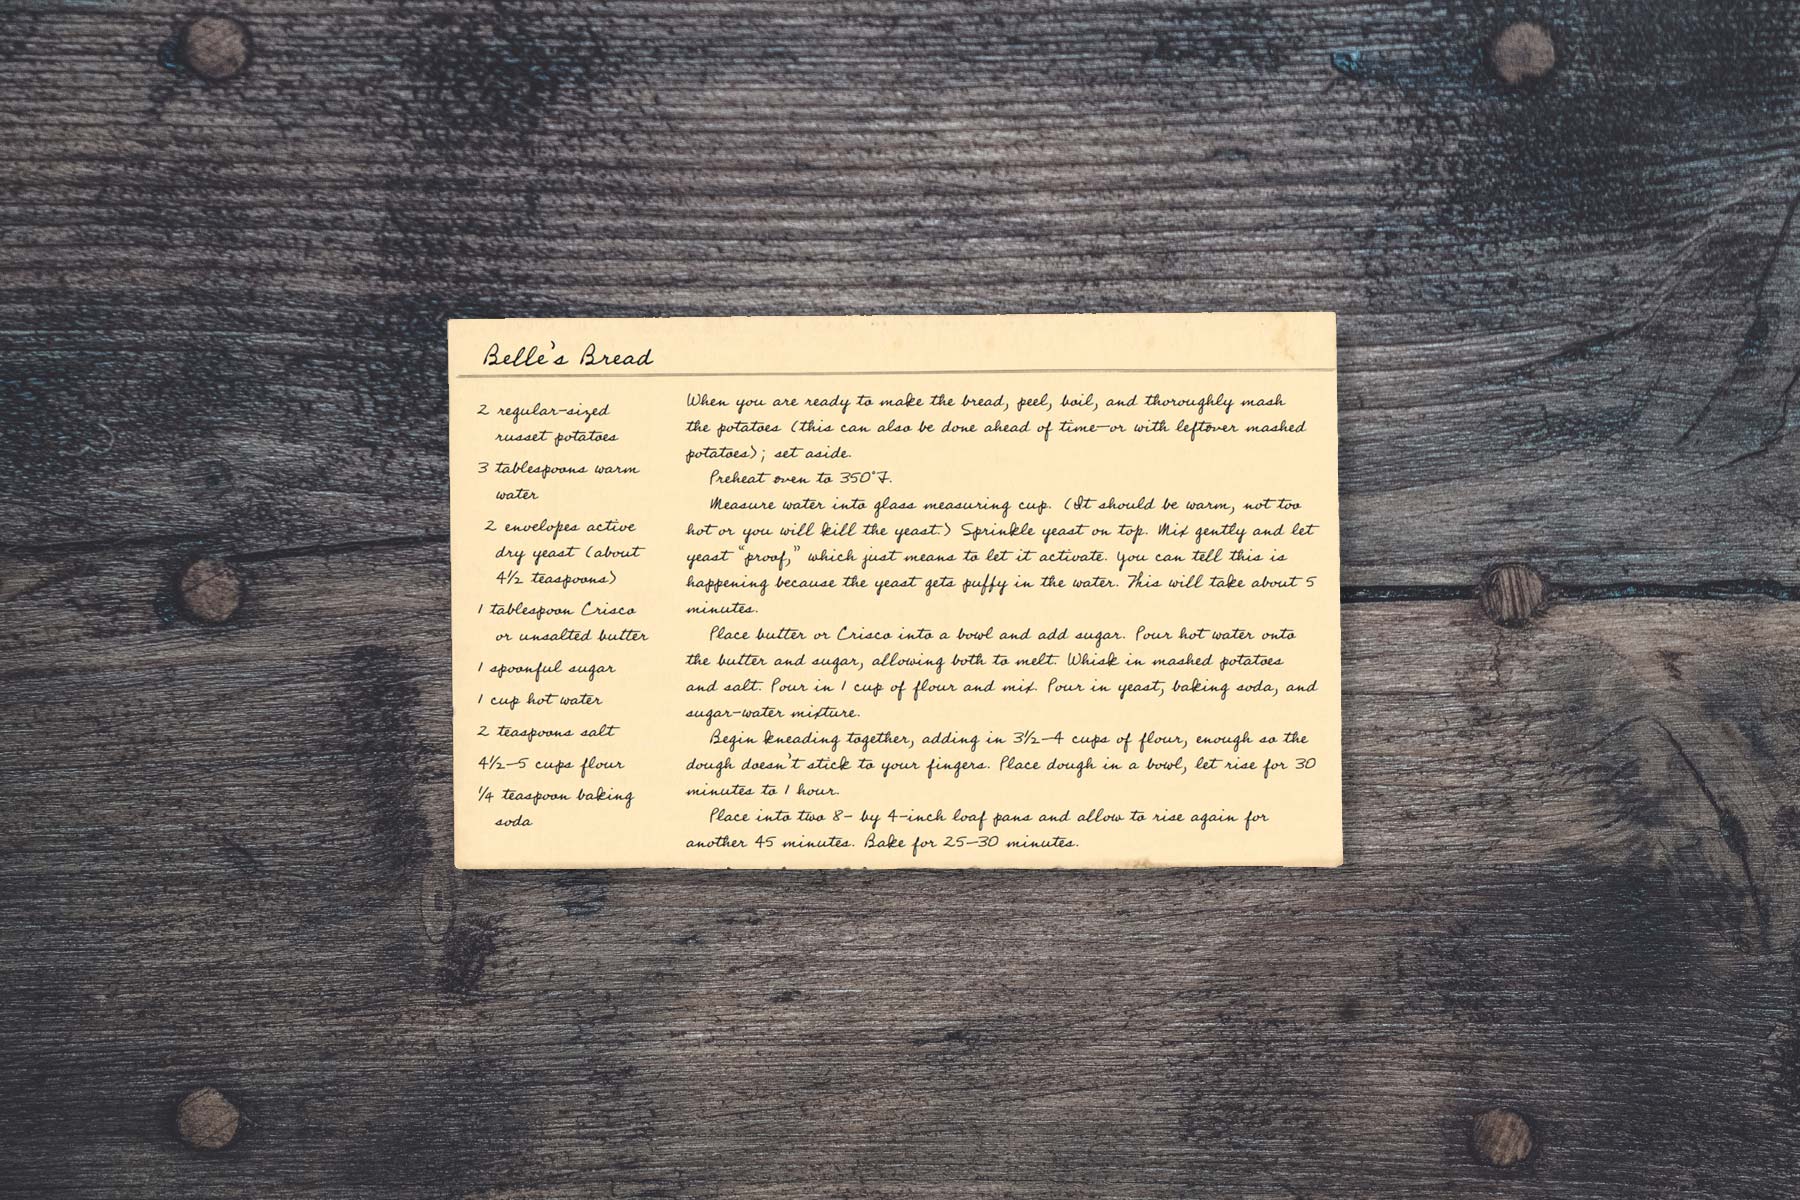 Belle's Bread
2 regular-sized
russet potatoes
3 tablespoons warm
water
2 envelopes active
dry yeast (about
4½ teaspoons)
1 tablespoon Crisco
or unsalted butter
1 spoonful sugar
1 cup hot water
2 teaspoons salt
4½–5 cups flour
¼ teaspoon baking
soda
When you are ready to make the bread, peel, boil, and thoroughly mash
the potatoes (this can also be done ahead of time—or with leftover mashed
potatoes); set aside.
Preheat oven to 350°F.
Measure water into glass measuring cup. (It should be warm, not too
hot or you will kill the yeast.) Sprinkle yeast on top. Mix gently and let
yeast “proof,” which just means to let it activate. You can tell this is
happening because the yeast gets puffy in the water. This will take about 5
minutes.
Place butter or Crisco into a bowl and add sugar. Pour hot water onto
the butter and sugar, allowing both to melt. Whisk in mashed potatoes
and salt. Pour in 1 cup of flour and mix. Pour in yeast, baking soda, and
sugar-water mixture.
Begin kneading together, adding in 3½–4 cups of flour, enough so the
dough doesn't stick to your fingers. Place dough in a bowl, let rise for 30
minutes to 1 hour.
Place into two 8- by 4-inch loaf pans and allow to rise again for
another 45 minutes. Bake for 25–30 minutes.